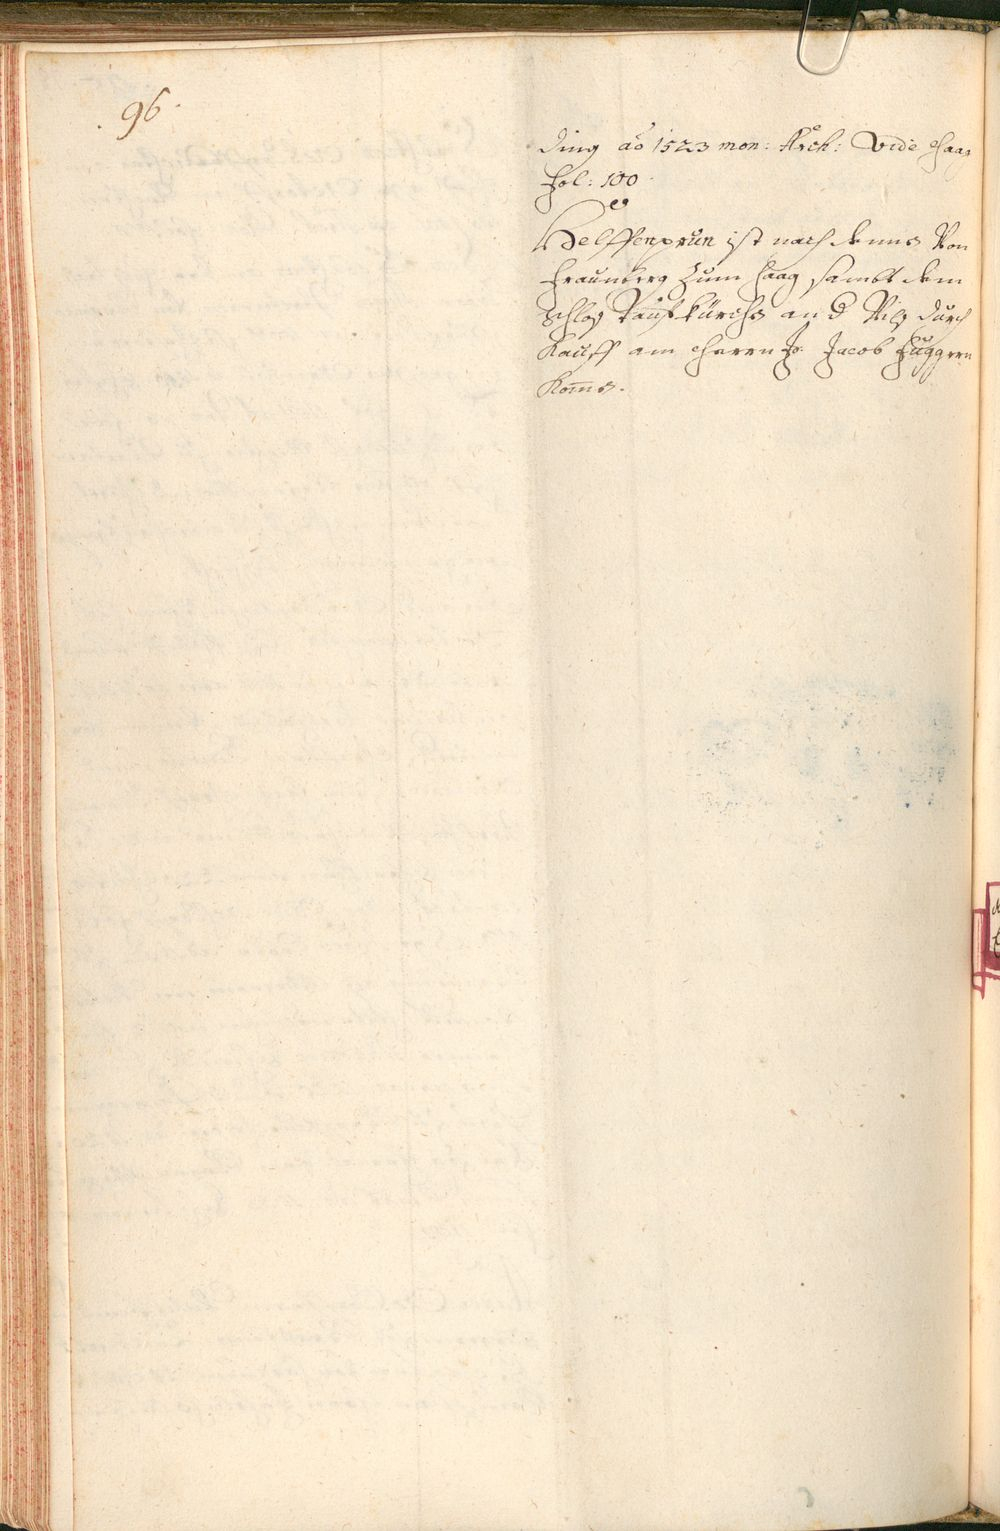 96.
ding ao 1523 mon: Arch: Vide Haag
Fol: 100
Helffenprun ist nach denns Von
Fraunberg zum Haag sambt dem
Schlos Tauffkürchs an d Vils durch
Kauff am Herrn Jo: Jacob Fuggern
Kom̄s.